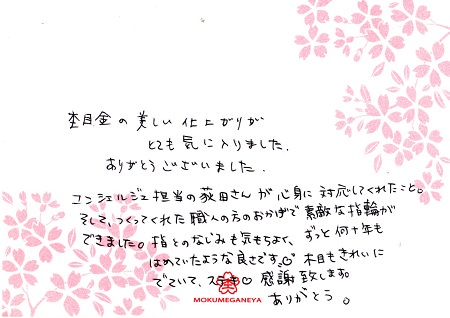 杢目金の美しい仕上がりが
とても気に入りました。
ありがとうございました。
コンシェルジェ担当の荻田さんが心身に対応してくれたこと。
そして、つくってくれた職人の方のおかげで素敵な指輪が
できました。指とのなじみも気もちよく、ずっと何十年も
はめていたような良さです。木目もきれいに
でていて、ステキ♡感謝致します。
ありがとう。
MOKUMEGANEYA